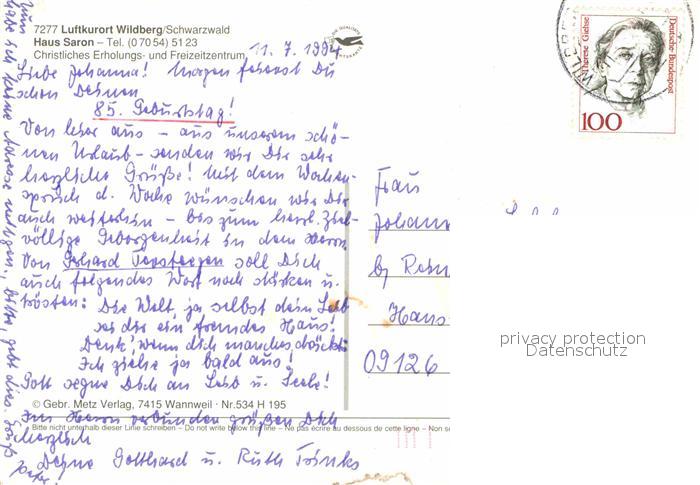 7277 Luftkurort Wildberg/Schwarzwald
Haus Saron – Tel. (0 70 54) 51 23
Christliches Erholungs- und Freizeitzentrum
11. 7. 1994
Liebe Johanna! Morgen feierst Du
schon Deinen
85. Geburtstag!
Von hier aus – aus unserem schö-
nen Urlaub – senden wir Dir sehr
herzliche Grüße! Mit dem Wochen-
spruch d. Woche wünschen wir Dir
auch weiterhin – bis zum herrl. Ziel-
völlige Geborgenheit in dem Herrn
Von Gerhard Tersteegen soll Dich
auch folgendes Wort noch stärken u.
trösten: Die Welt, ja selbst dein Leib
sei dir ein fremdes Haus!
Denk', wenn dich manches drückt:
Ich ziehe ja bald aus!
Gott segne Dich an Leib u. Seele!
© Gebr. Metz Verlag, 7415 Wannweil · Nr. 534 H 195
Im Herrn verbunden grüßen Dich
Bitte nicht unterhalb dieser Linie schreiben – Do not write below this line – Ne pas écrire au dessous de cette ligne – Non s
herzlich
Deine Gotthard u. Ruth
habe ich keine Adresse
Frau
Johann
b/
Hans
09126
Therese Giehse
Deutsche Bundespost
100
privacy protection
Datenschutz